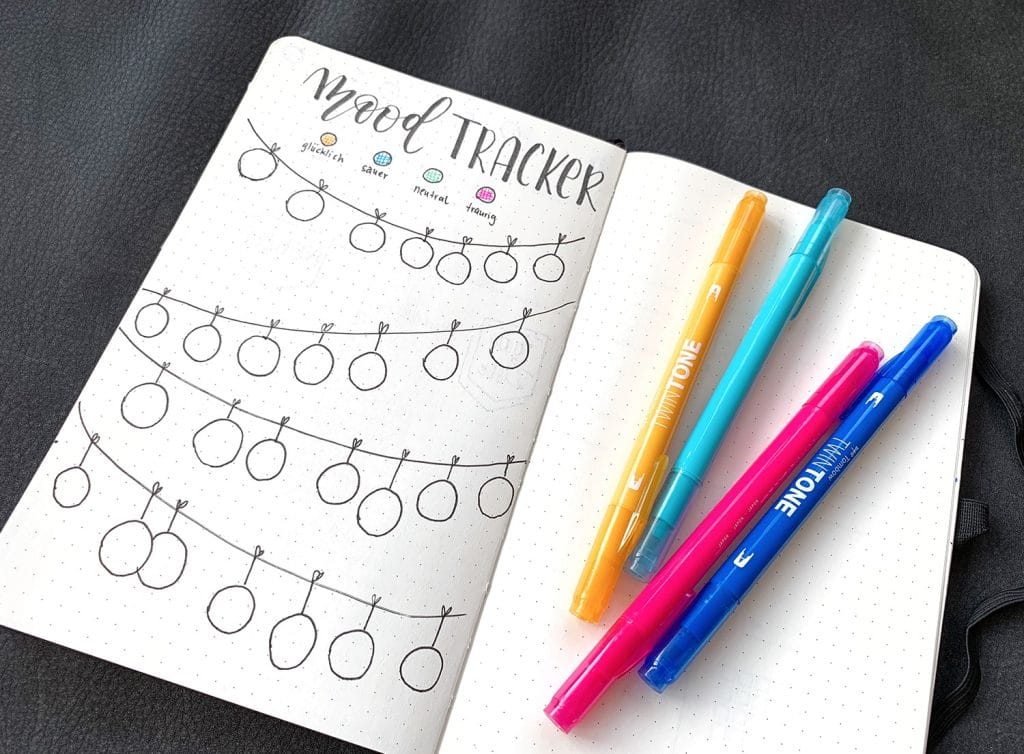 mood TRACKER
glücklich
sauer
neutral
traurig
TWINTONE
Tombow
TWINTONE